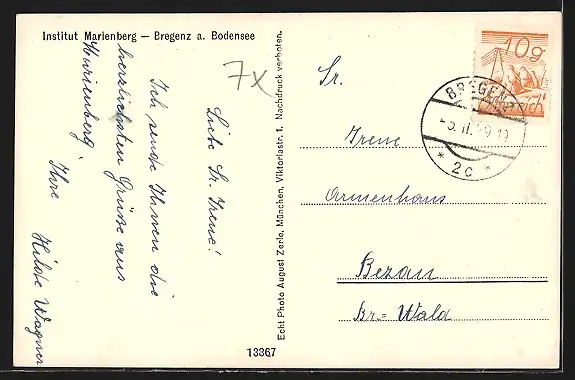 Institut Marienberg — Bregenz a. Bodensee
7x
Liebe Sr. Irene!
Ich sende Ihnen die
herzlichsten Grüße aus
Marienberg
Ihre
Hilde Wagner
Echt Photo August Zerle, München, Viktoriastr. 1. Nachdruck verboten.
13367
10g
BREGENZ
2c
Sr.
Irene
Armenhaus
Bezau
Br.=Wald